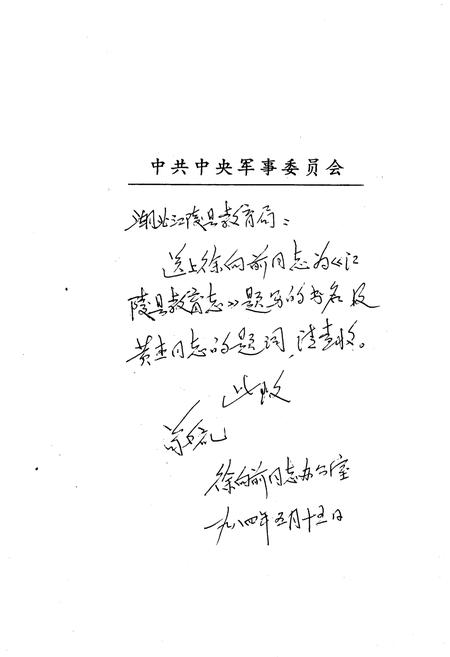 中共中央军事委员会
湖北江陵县教育局：
送上徐向前同志为《江
陵县教育志》题写的书名及
黄杰同志的题词，请查收。
此致
敬礼
徐向前同志办公室
一九八四年五月十五日